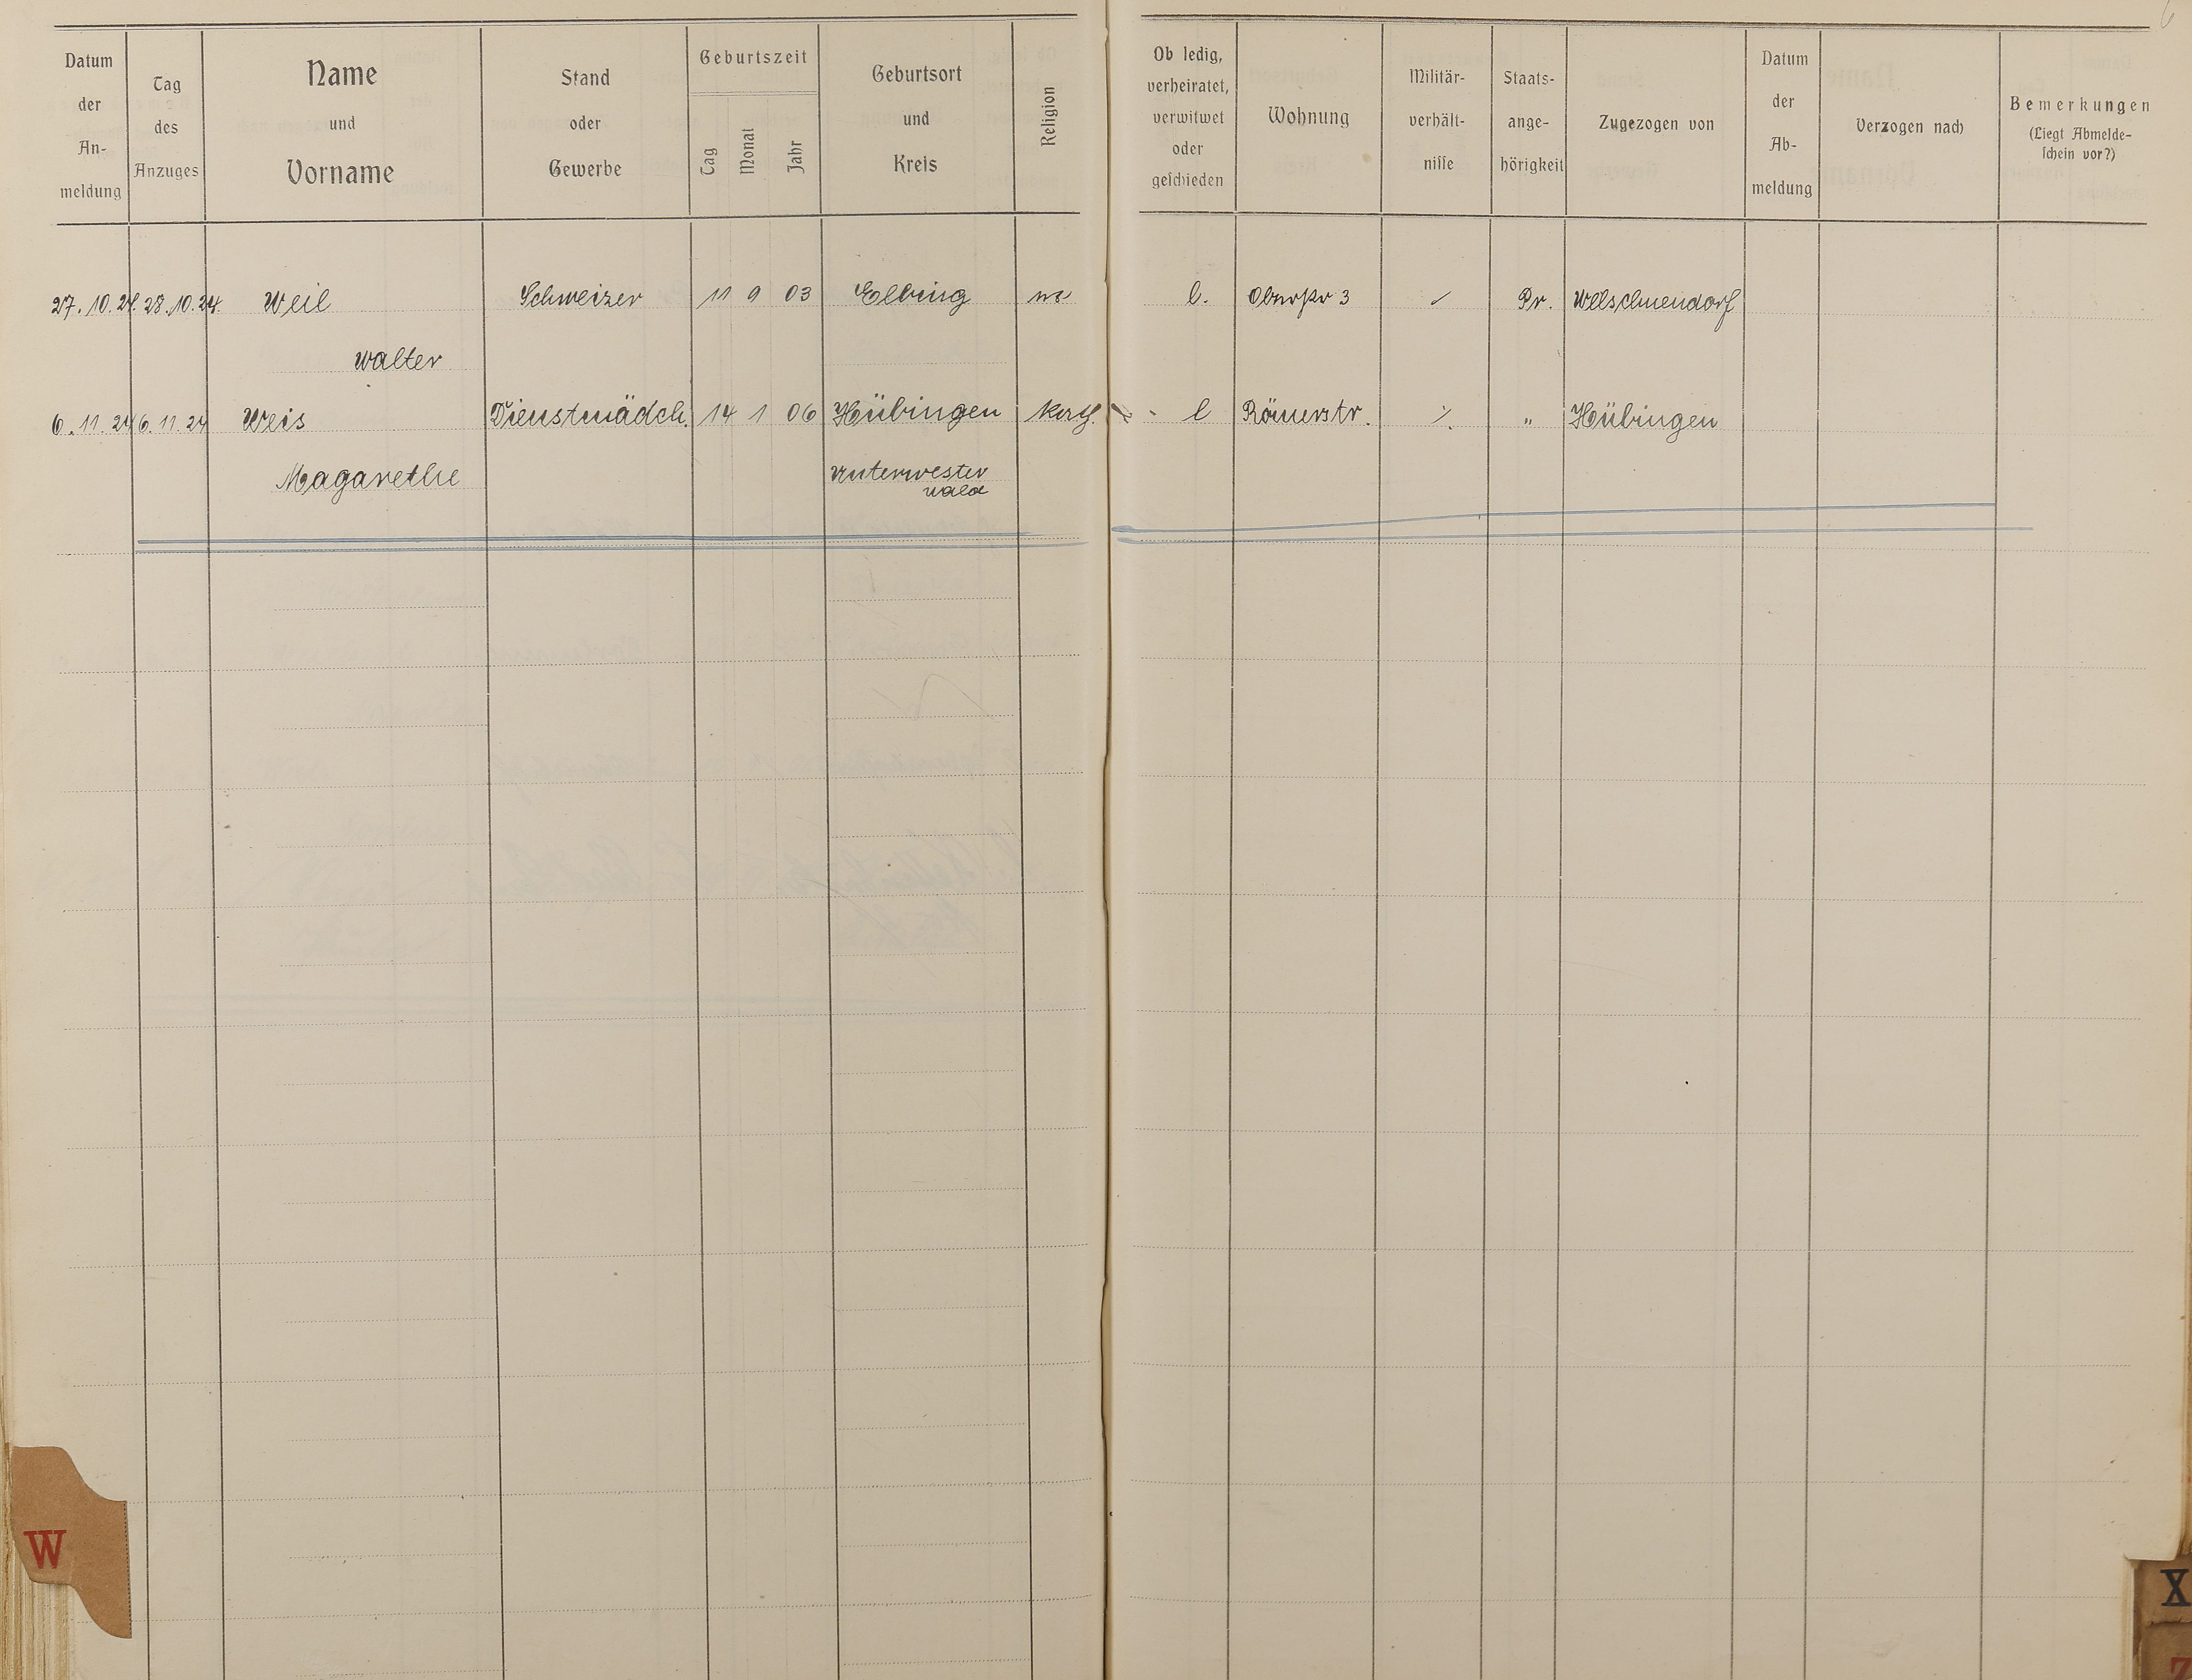 Datum der An- meldung
Tag des Anzuges
Name und Vorname
Stand oder Gewerbe
Geburtszeit
Tag Monat Jahr
Geburtsort und Kreis
Religion
Ob ledig, verheiratet, verwitwet oder geschieden
Wohnung
Militär- verhält- nisse
Staats- ange- hörigkeit
Zugezogen von
Datum der Ab- meldung
Verzogen nach
Bemerkungen
(Liegt Abmelde- schein vor?)
27.10.24. 28.10.24. Weil Schweizer 11 9 03 Elbing l. 3 Pr. Welschneudorf
Walter
6.11.24 6.11.24 Weis Dienstmädch. 14 1 06 Hübingen Kath. l Römerstr. ./. " Hübingen
Magarethe Unterwester
wald
W
X
Z